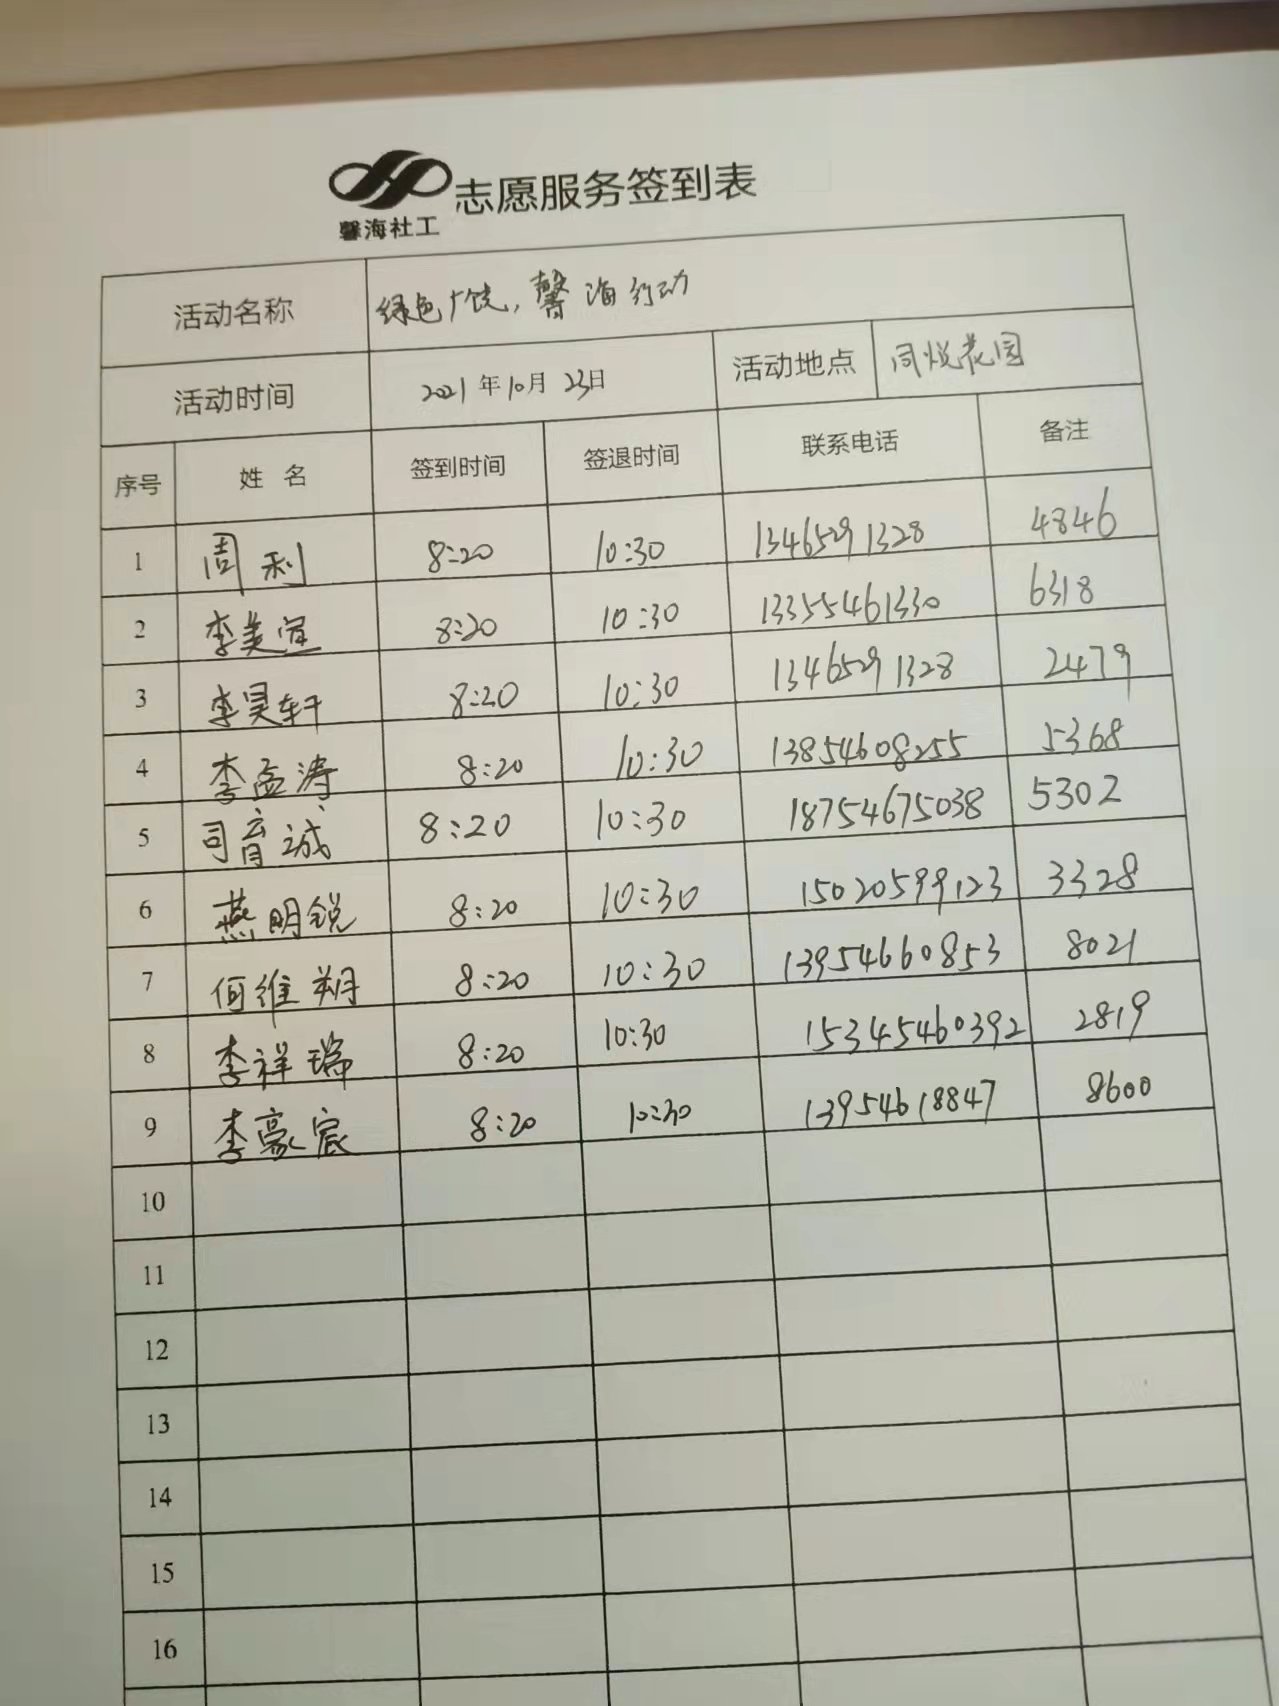 馨海社工
志愿服务签到表
活动名称 绿色广饶,馨海行动
活动时间 2021年10月23日 活动地点 同悦花园
序号 姓 名 签到时间 签退时间 联系电话 备注
1 周利 8:20 10:30 13465291328 4846
2 李美萱 8:20 10:30 13355461330 6318
3 李昊轩 8:20 10:30 13465291328 2479
4 李孟涛 8:20 10:30 13854608255 5368
5 司育诚 8:20 10:30 18754675038 5302
6 燕明锐 8:20 10:30 15020599123 3328
7 何维朔 8:20 10:30 13954660853 8021
8 李祥瑞 8:20 10:30 15345460392 2819
9 李豪宸 8:20 10:30 13954618847 8600
10
11
12
13
14
15
16